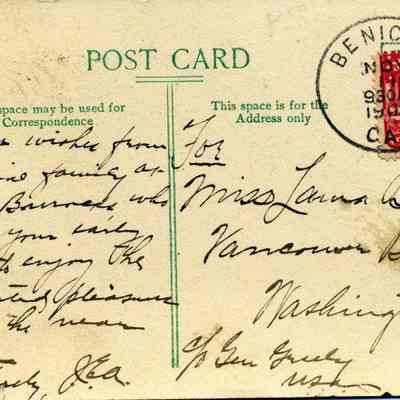 POST CARD
space may be used for
Correspondence
This space is for the
Address only
BENIC
NO
930
190
CA
wishes from
family
Barness who
your early
enjoy the
pleasures
the near
J.E.A.
For
Miss Laura
Vancouver B
Washing
c/o Gen Greely
USA